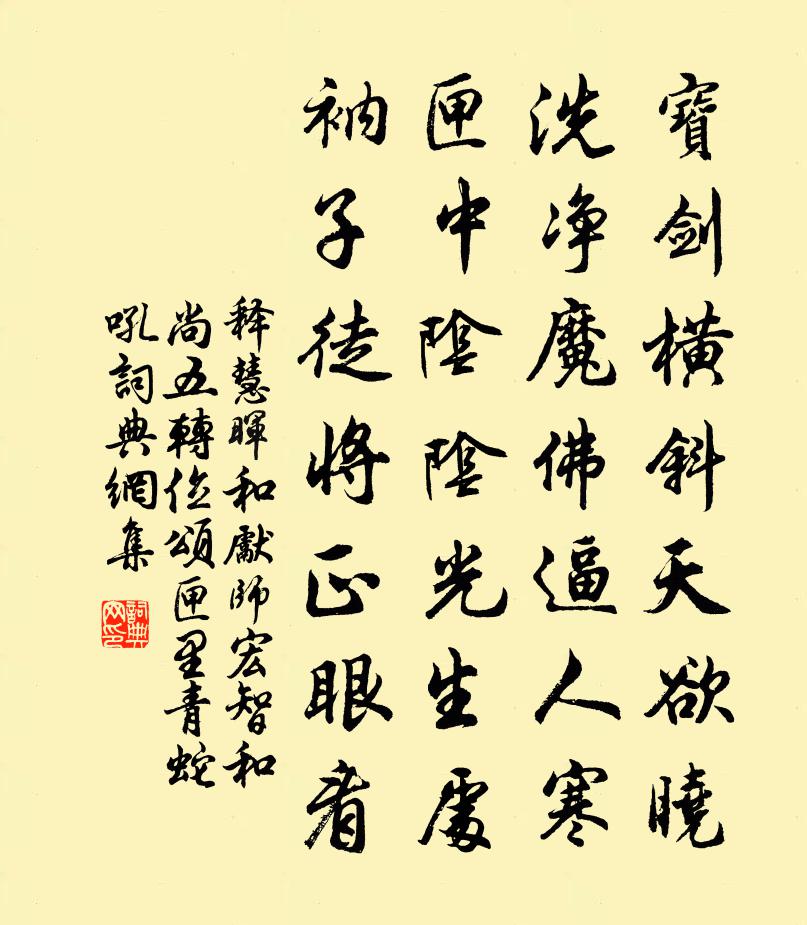 寶劍橫斜天欲曉
洗净魔佛逼人寒
匣中陰陰光生處
衲子徒將正眼看
釋慧暉和獻師宏智和
尚五轉位頌匣里青蛇
吼詞典網集
詞典网印